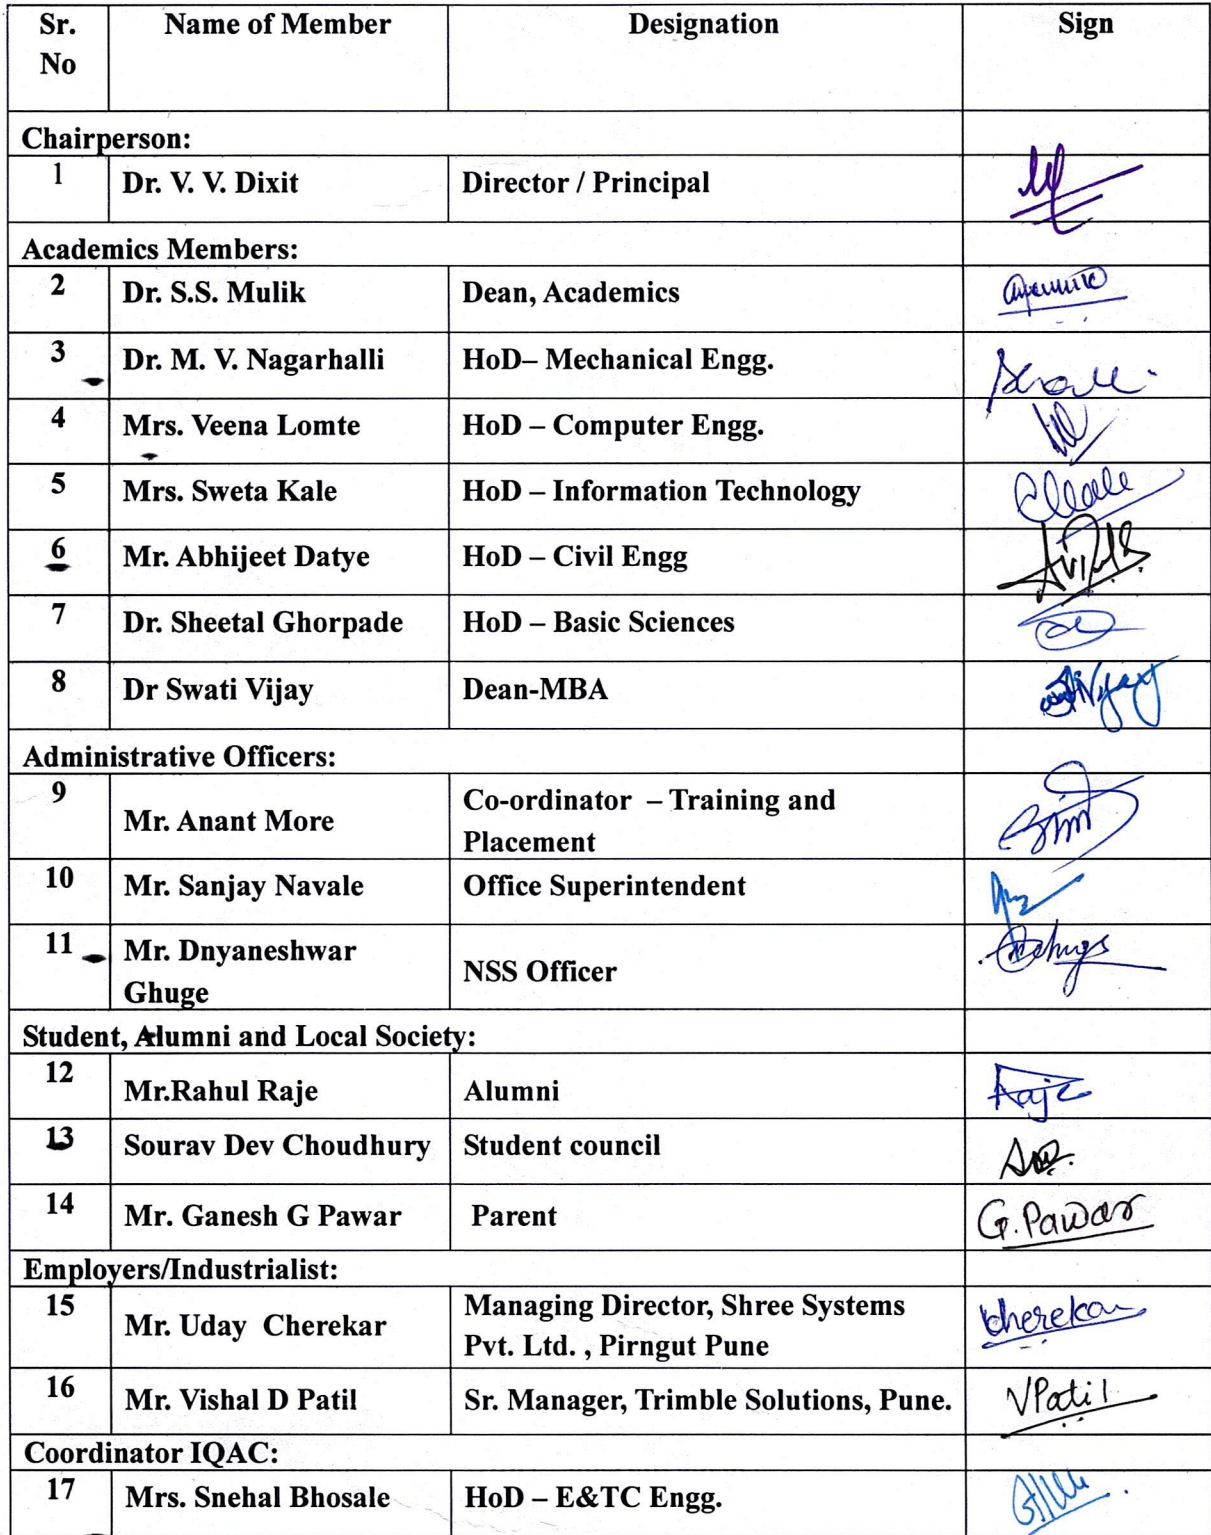 Sr. No Name of Member Designation Sign
Chairperson:
1 Dr. V. V. Dixit Director / Principal
Academics Members:
2 Dr. S.S. Mulik Dean, Academics
3 Dr. M. V. Nagarhalli HoD– Mechanical Engg.
4 Mrs. Veena Lomte HoD – Computer Engg.
5 Mrs. Sweta Kale HoD – Information Technology
6 Mr. Abhijeet Datye HoD – Civil Engg
7 Dr. Sheetal Ghorpade HoD – Basic Sciences
8 Dr Swati Vijay Dean-MBA
Administrative Officers:
9 Mr. Anant More Co-ordinator – Training and
Placement
10 Mr. Sanjay Navale Office Superintendent
11 Mr. Dnyaneshwar
Ghuge NSS Officer
Student, Alumni and Local Society:
12 Mr.Rahul Raje Alumni Raje
13 Sourav Dev Choudhury Student council
14 Mr. Ganesh G Pawar Parent G.Pawar
Employers/Industrialist:
15 Mr. Uday Cherekar Managing Director, Shree Systems
Pvt. Ltd. , Pirngut Pune
16 Mr. Vishal D Patil Sr. Manager, Trimble Solutions, Pune. VPatil
Coordinator IQAC:
17 Mrs. Snehal Bhosale HoD – E&TC Engg.